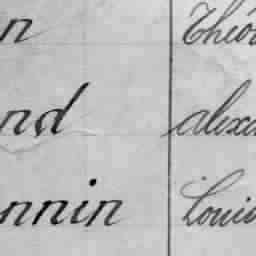 n Théo
nd alexa
nnin Loui